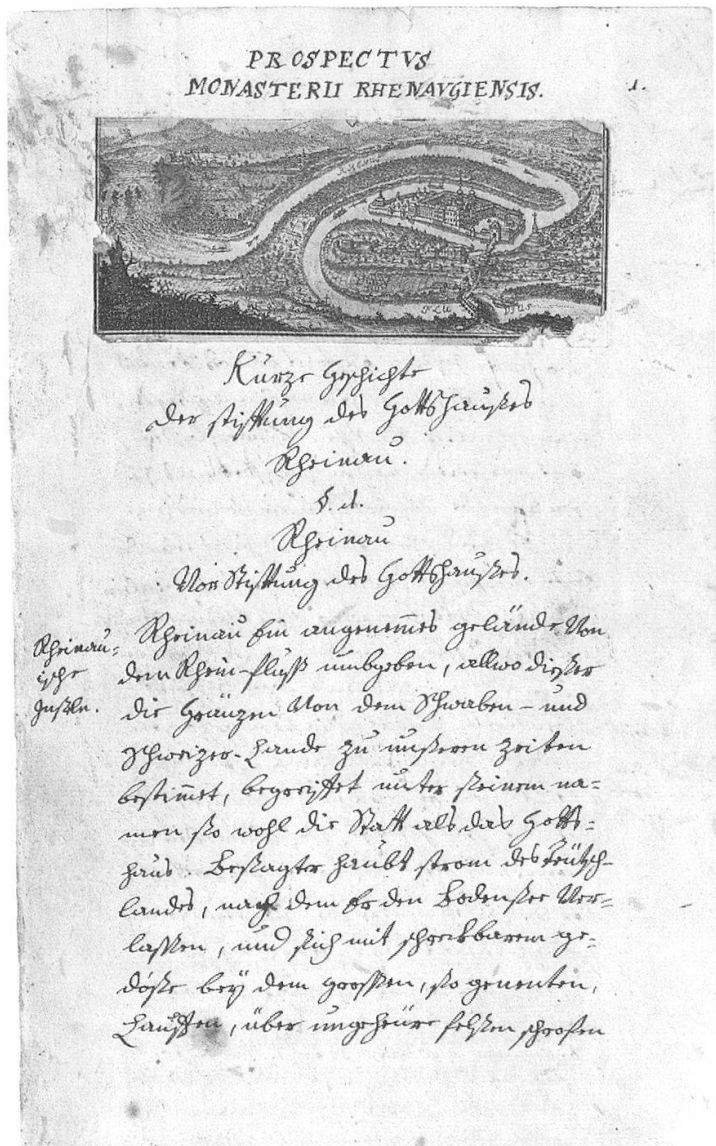 PROSPECTVS
MONASTERII RHENAVGIENSIS.
1.
FLU VIUS
Kurze Geschichte
der stifftung des Gottshaußes
Rheinau.
§. 1.
Rheinau
Vor Stifftung des Gottshaußes.
Rheinau-
ische
Inßeln.
Rheinau Ein angenem̄es gelände Von
dem Rhein-fluß umbgeben, allwo dießer
die Gränzen Von dem Schwaben- und
Schweizer-Lande zu unßeren zeiten
bestim̄et, begreiffet unter seinem na-
men so wohl die Statt als das Gotts-
haus. Besagter haubt strom des Teütsch-
landes, nach dem Er den Bodensee Ver-
lassen, und sich mit schreckbarem ge-
döße beÿ dem großen, so genenten,
Lauffen, über ungeheüre felßen schrofen